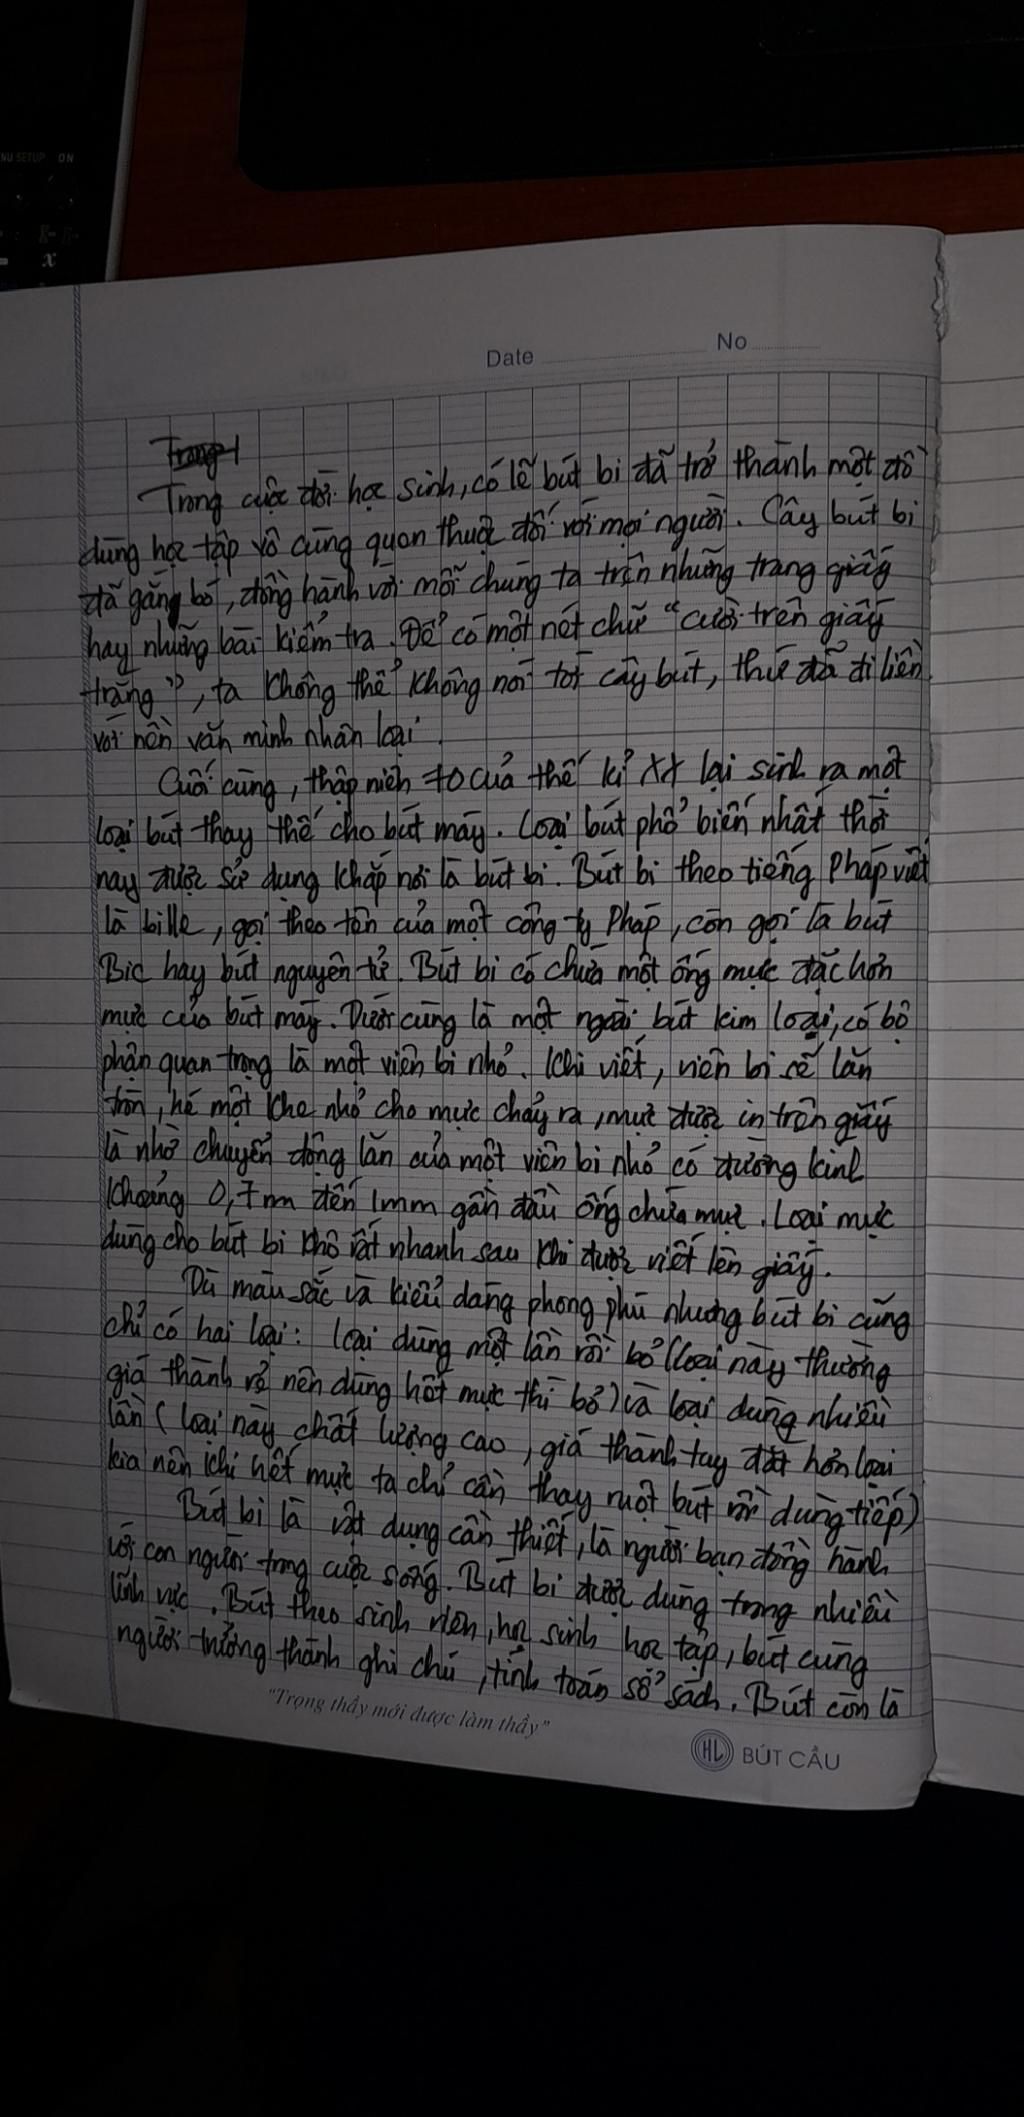 NU SETUP ON
x
Date No
Trong
Trong cuộc đời học sinh, có lẽ bút bi đã trở thành một đồ
dùng học tập vô cùng quen thuộc đối với mọi người. Cây bút bi
đã gắng bó, đồng hành với mỗi chúng ta trên những trang giấy
hay những bài kiểm tra. Để có một nét chữ "cười trên giấy
trắng", ta không thể không nói tới cây bút, thứ đã đi liền
với nền văn minh nhân loại.
Cuối cùng, thập niên 70 của thế kỉ XX lại sinh ra một
loại bút thay thế cho bút máy. Loại bút phổ biến nhất thời
nay được sử dụng khắp nơi là bút bi. Bút bi theo tiếng Pháp viết
là bille, gọi theo tên của một công ty Pháp, còn gọi là bút
Bic hay bút nguyên tử. Bút bi có chứa một ống mực đặc hơn
mực của bút máy. Dưới cùng là một ngòi bút kim loại, có bộ
phận quan trọng là một viên bi nhỏ. Khi viết, viên bi sẽ lăn
tròn, hé một khe nhỏ cho mực chảy ra, mực được in trên giấy
là nhờ chuyển động lăn của một viên bi nhỏ có đường kính
khoảng 0,7mm đến 1mm gần đầu ống chứa mực. Loại mực
dùng cho bút bi khô rất nhanh sau khi được viết lên giấy.
Dù màu sắc và kiểu dáng phong phú nhưng bút bi cũng
chỉ có hai loại: loại dùng một lần rồi bỏ (loại này thường
giá thành rẻ nên dùng hết mực thì bỏ) và loại dùng nhiều
lần (loại này chất lượng cao, giá thành tuy đắt hơn loại
kia nên khi hết mực ta chỉ cần thay ruột bút rồi dùng tiếp)
Bút bi là vật dụng cần thiết, là người bạn đồng hành
với con người trong cuộc sống. Bút bi được dùng trong nhiều
lĩnh vực. Bút theo sinh viên, học sinh học tập, bút cùng
người trưởng thành ghi chú, tính toán sổ sách. Bút còn là
"Trọng thầy mới được làm thầy"
HL BÚT CẦU